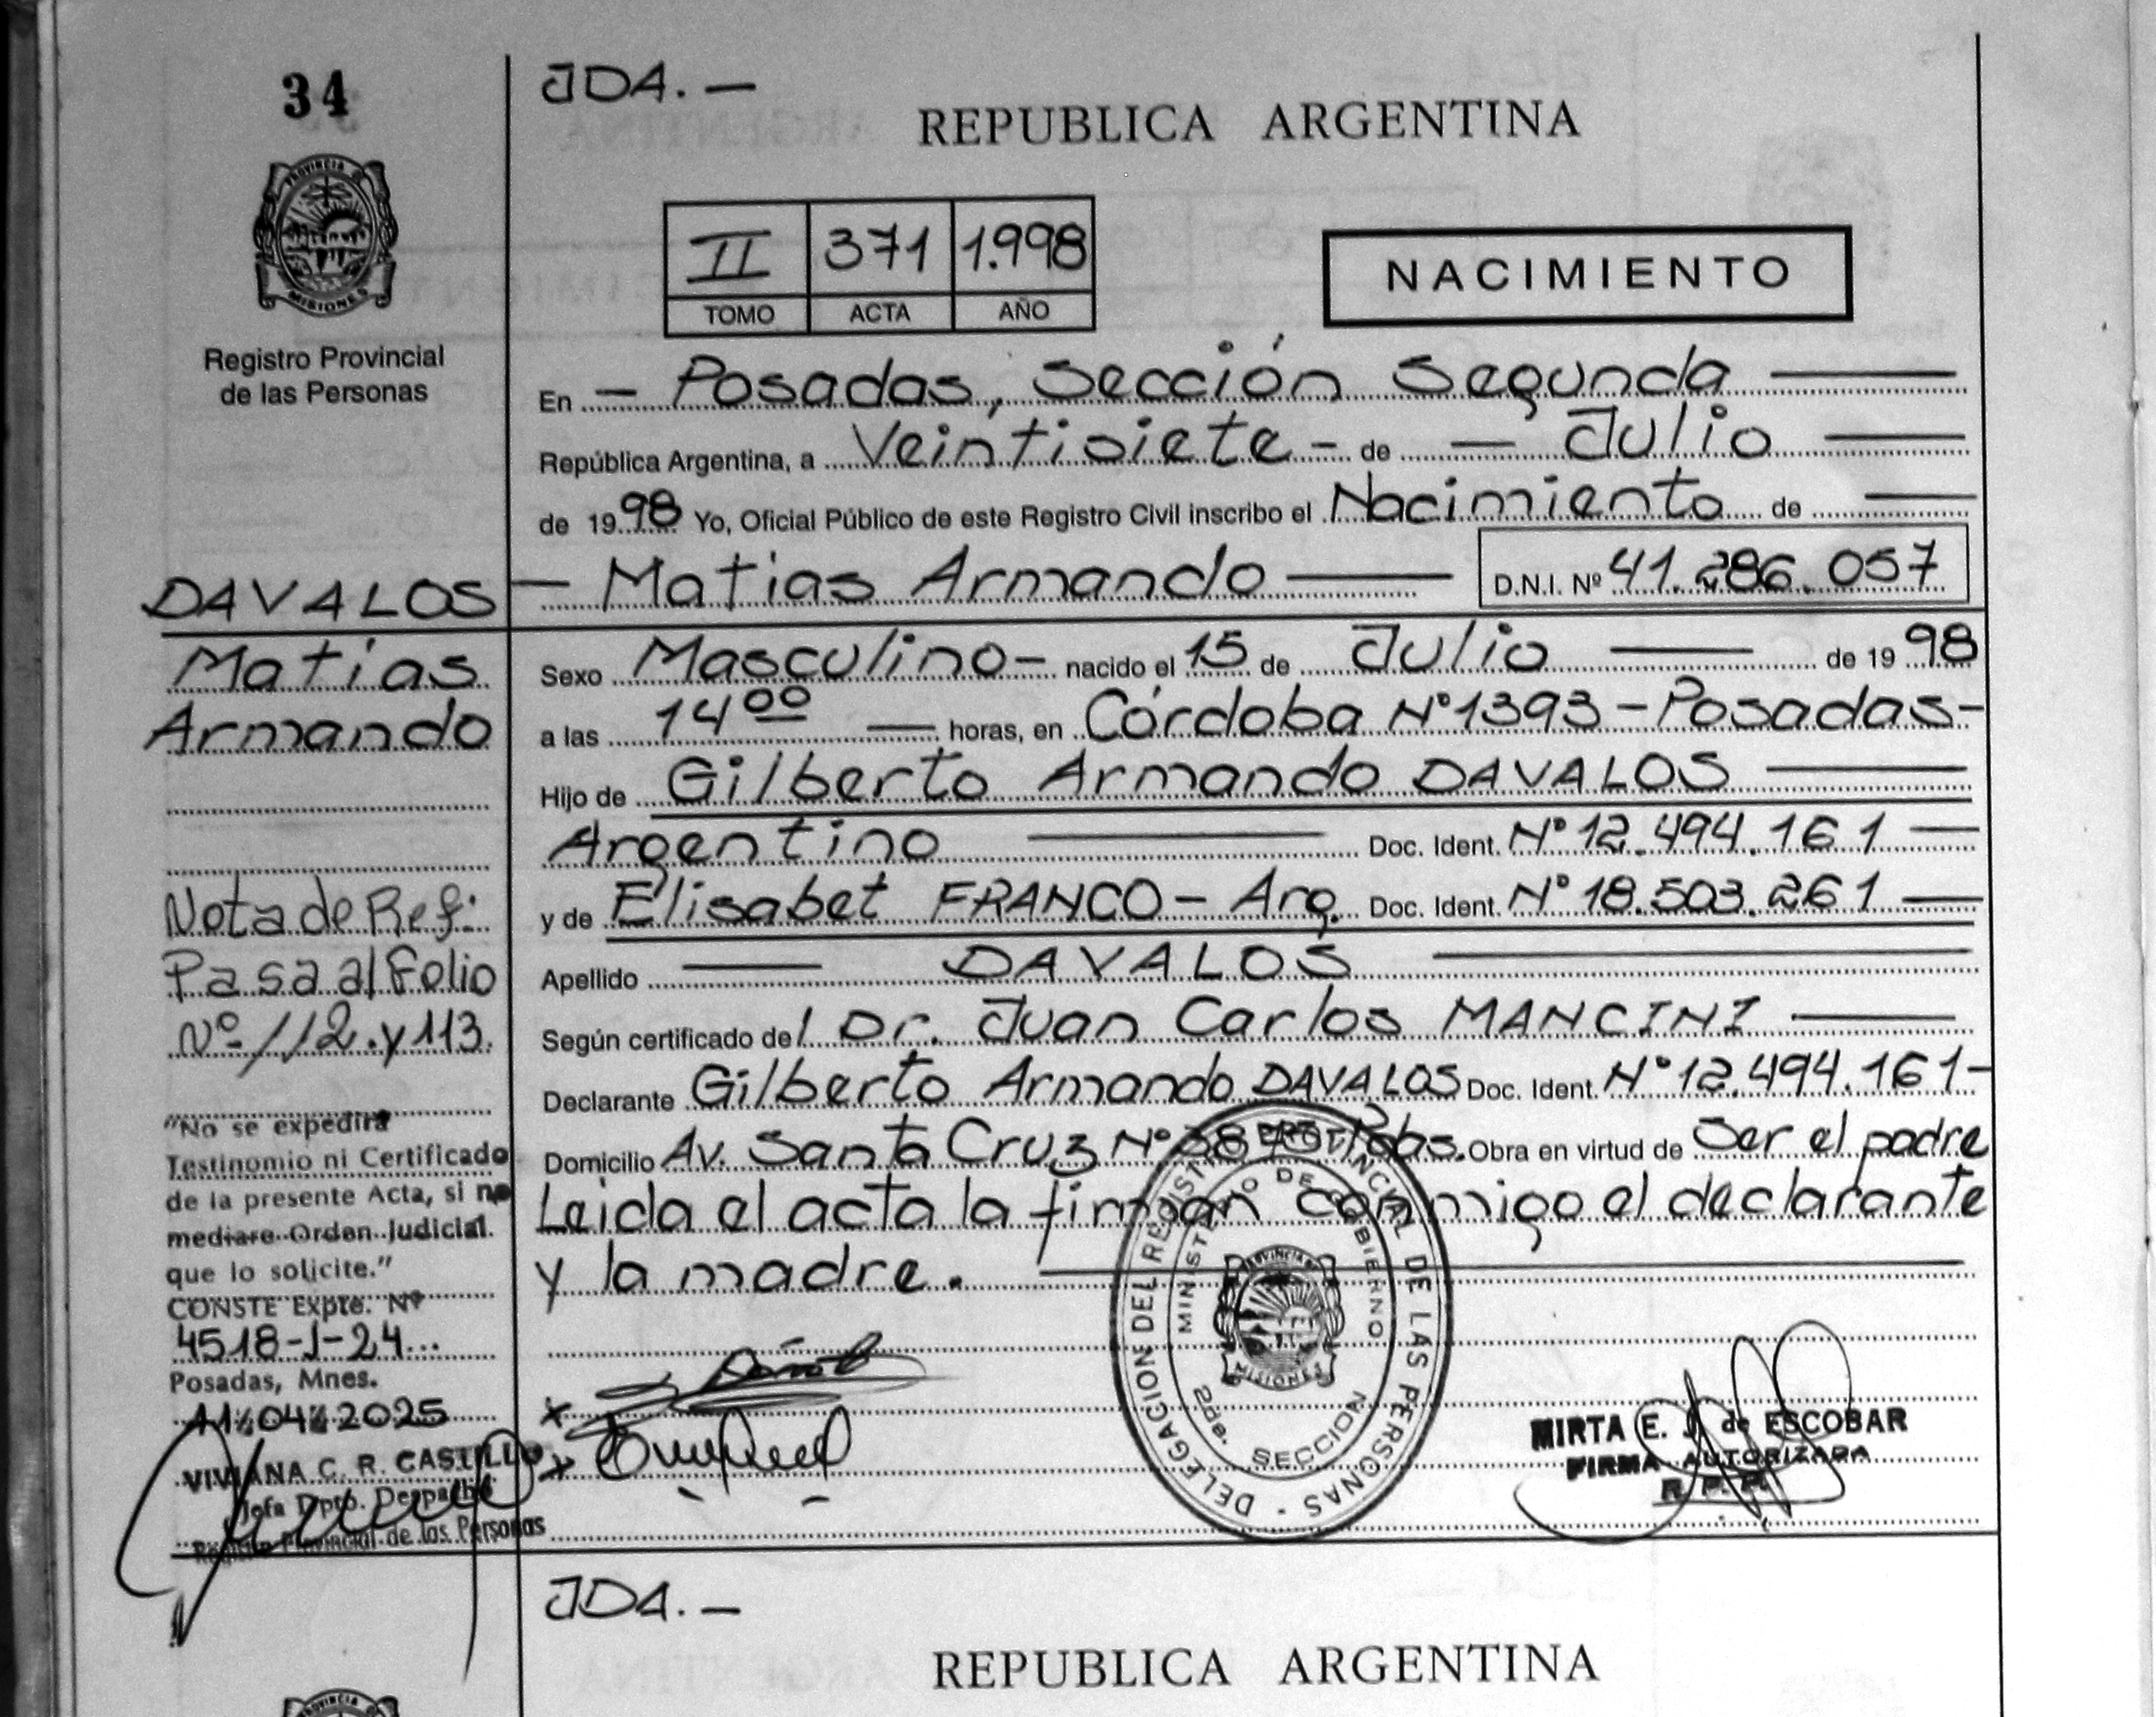 34
JDA. —
REPUBLICA ARGENTINA
PROVINCIA DE
MISIONES
Registro Provincial
de las Personas
II 371 1.998
TOMO ACTA AÑO
NACIMIENTO
En — Posadas, Sección Segunda —
República Argentina, a Veintisiete - de — Julio —
de 1998 Yo, Oficial Público de este Registro Civil inscribo el Nacimiento de —
— Matias Armando — D.N.I. Nº 41.286.057
DAVALOS
Matías
Armando
Sexo Masculino - nacido el 15 de Julio — de 1998
a las 14 00 — horas, en Córdoba Nº 1393 - Posadas -
Hijo de Gilberto Armando DAVALOS —
Argentino — Doc. Ident. Nº 12.494.161 —
y de Elisabet FRANCO - Arg. Doc. Ident. Nº 18.503.261 —
Apellido — DAVALOS —
Según certificado del Dr. Juan Carlos MANCINI —
Declarante Gilberto Armando DAVALOS Doc. Ident. Nº 12.494.161 -
Domicilio Av. Santa Cruz Nº Pdas. Obra en virtud de Ser el padre
Leida el acta la firman conmigo el declarante
y la madre. —
Nota de Ref:
Pasa al Folio
Nº 112 y 113.
"No se expedirá
Testinomio ni Certificado
de la presente Acta, si no
mediare Orden Judicial
que lo solicite."
CONSTE Expte. Nº
4518-J-24
Posadas, Mnes.
11/04/2025
VIVIANA C. R. CASTILLO
Jefa Dpto. Despacho
Registro Provincial de las Personas
DELEGACION DEL REGISTRO PROVINCIAL DE LAS PERSONAS -
MINISTERIO DE GOBIERNO
PROVINCIA DE
MISIONES
2da. SECCION
MIRTA E. J. de ESCOBAR
FIRMA AUTORIZADA
R. P. P.
JDA. —
REPUBLICA ARGENTINA
PROVINCIA DE